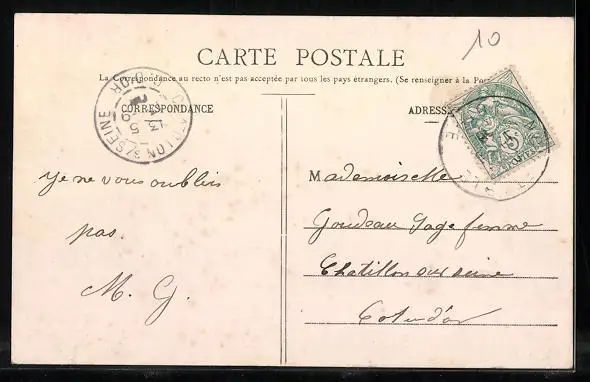 10
CARTE POSTALE
La Correspondance au recto n'est pas acceptée par tous les pays étrangers. (Se renseigner à la Pos
CORRESPONDANCE
ADRESSE
CHATILLON S/ SEINE COTE D'OR
13
5
Je ne vous oublies
pas.
M. G.
Mademoiselle
Goudeau Sage femme
Chatillon sur seine
Cote d'or